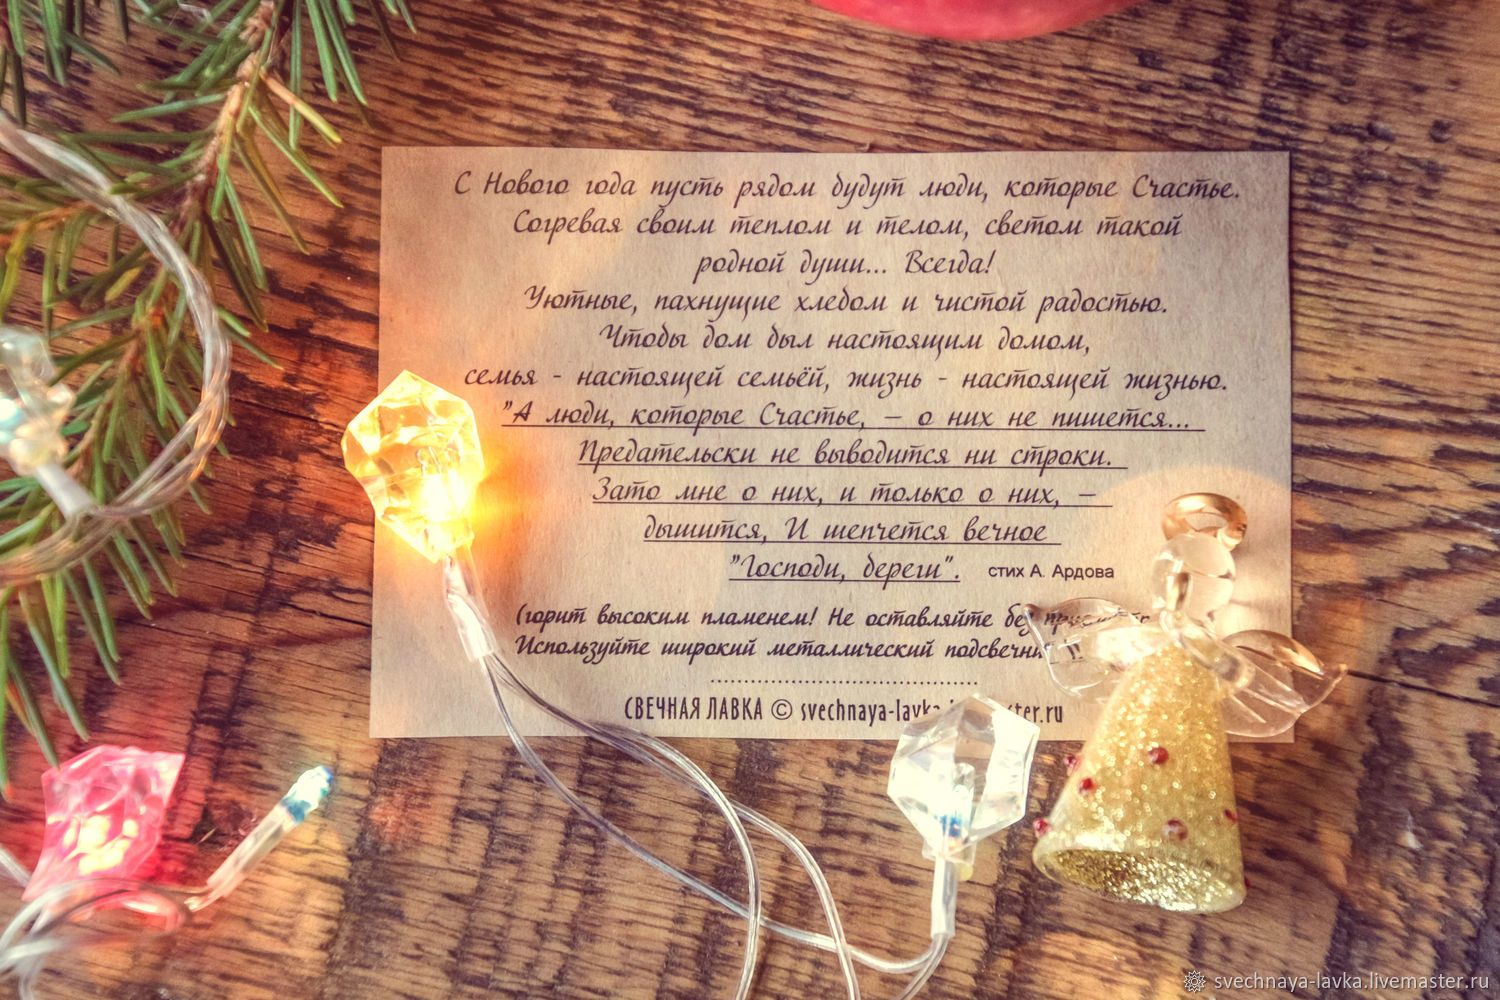 С Нового года пусть рядом будут люди, которые Счастье.
Согревая своим теплом и телом, светом такой
родной души... Всегда!
Уютные, пахнущие хлебом и чистой радостью.
Чтобы дом был настоящим домом,
семья - настоящей семьёй, жизнь - настоящей жизнью.
"А люди, которые Счастье, – о них не пишется...
Предательски не выводится ни строки.
Зато мне о них, и только о них, –
дышится, И шепчется вечное
"Господи, береги". стих А. Ардова
(горит высоким пламенем! Не оставляйте без
Используйте широкий металлический
......................................
СВЕЧНАЯ ЛАВКА © svechnaya-lavka
svechnaya-lavka.livemaster.ru